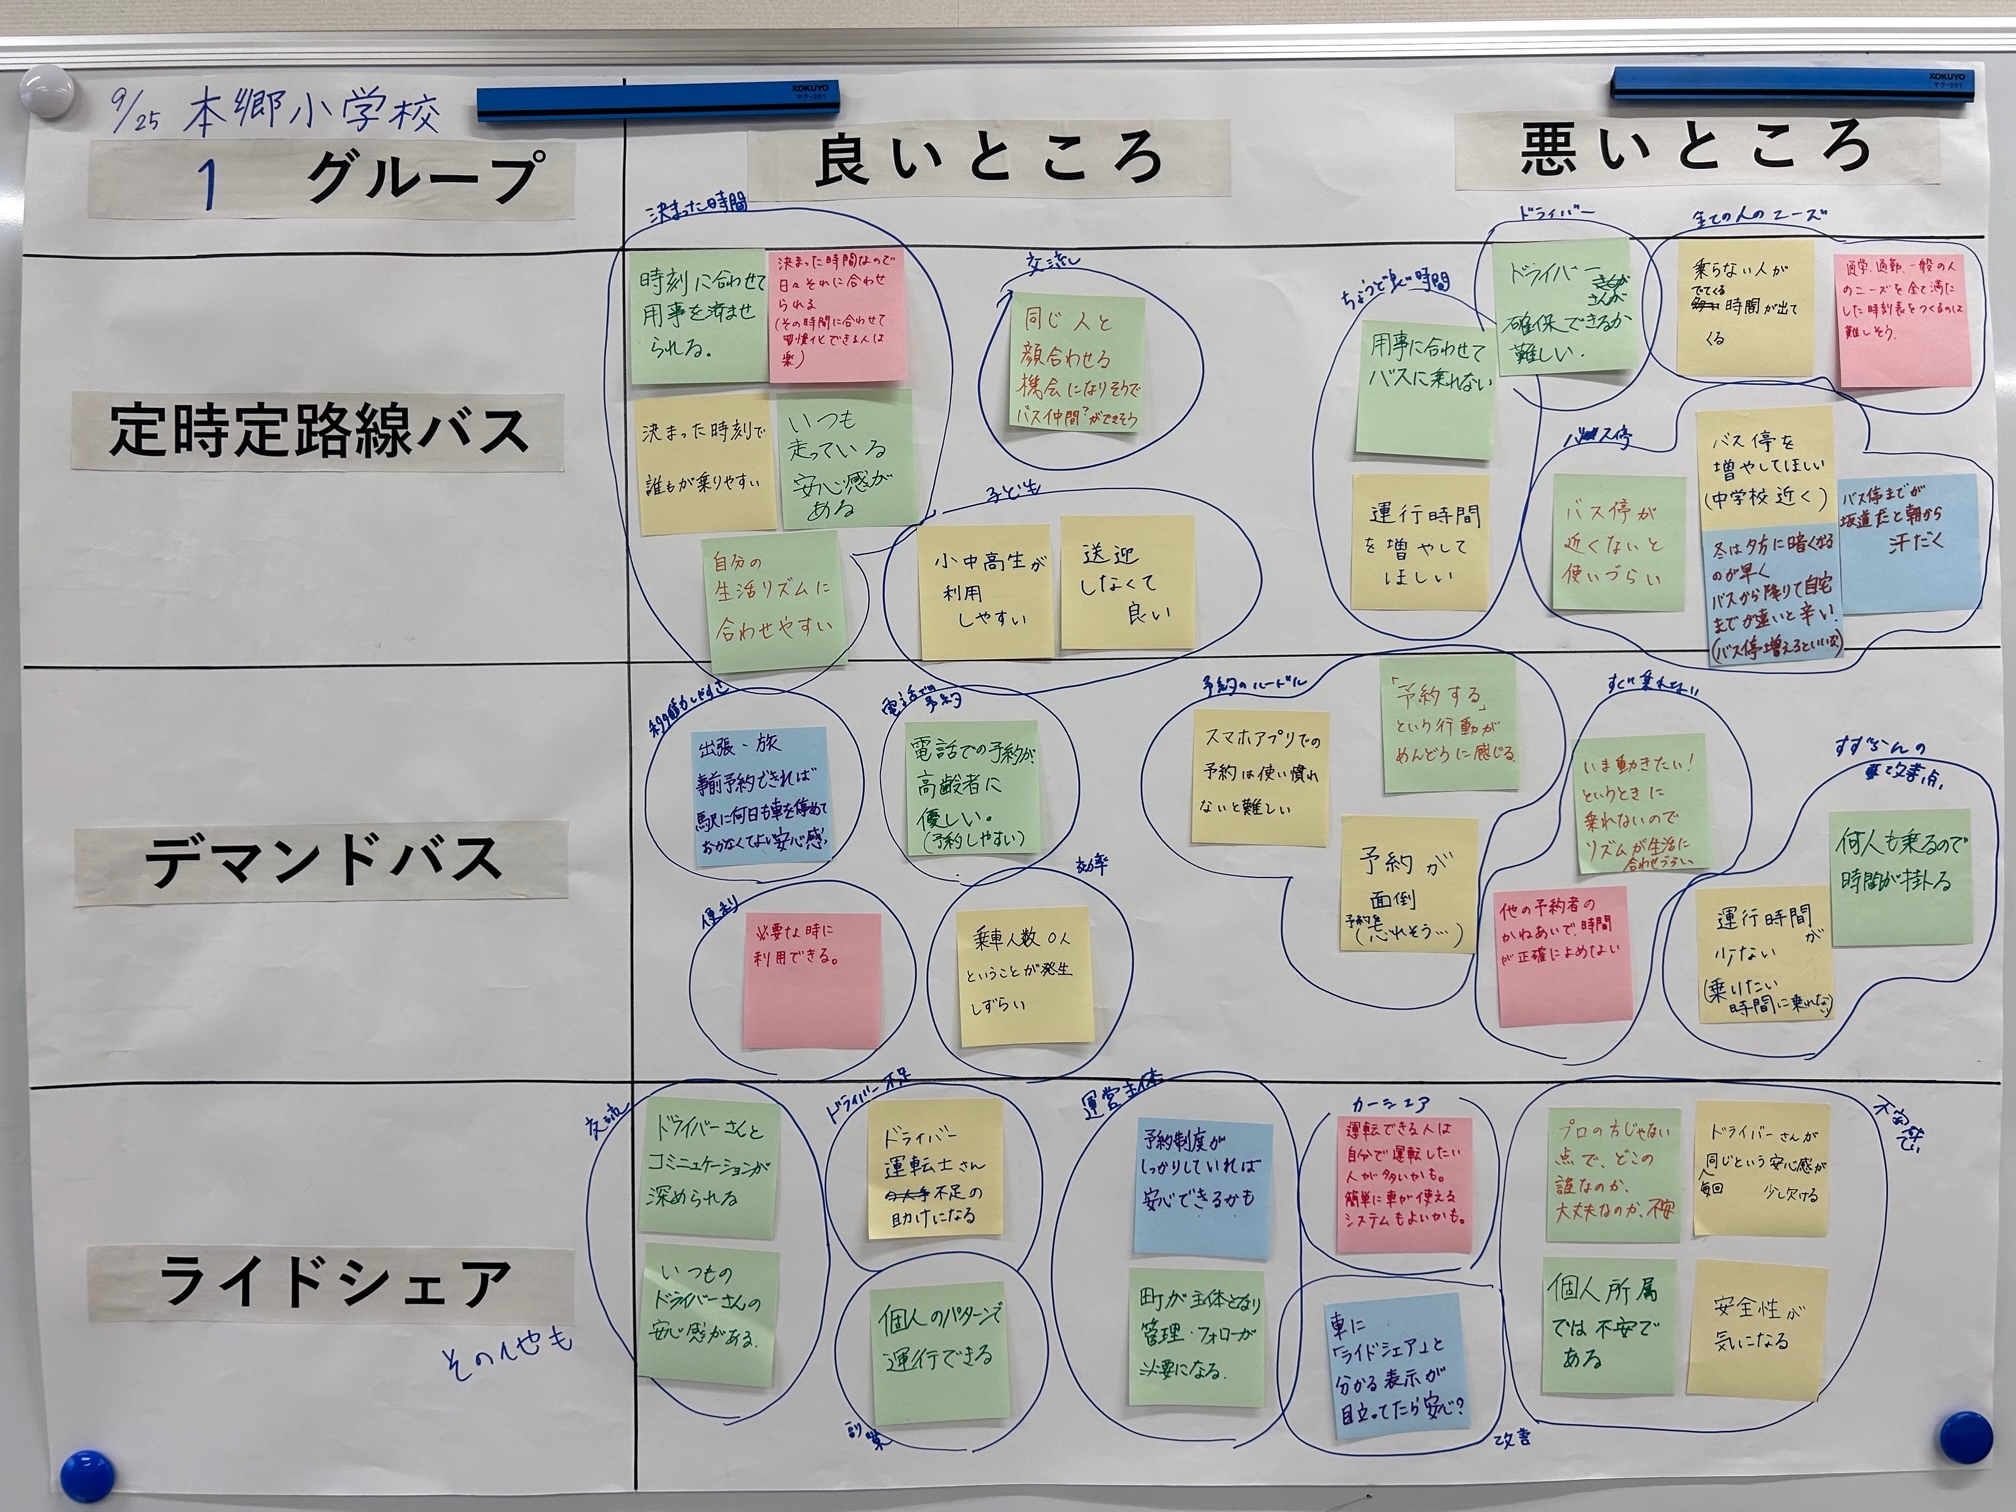 KOKUYO
マク-201
KOKUYO
マク-201
9/25 本郷小学校
1 グループ
良いところ
悪いところ
定時定路線バス
決まった時間
時刻に合わせて
用事を済ませ
られる。
決まった時間なので
日々それに合わせ
られる
(その時間に合わせて
習慣化できる人は
楽)
決まった時刻で
誰もが乗りやすい
いつも
走っている
安心感が
ある
自分の
生活リズムに
合わせやすい
交流
同じ人と
顔合わせる
機会になりそうで
バス仲間?ができそう
子ども
小中高生が
利用
しやすい
送迎
しなくて
良い
ちょうど良い時間
用事に合わせて
バスに乗れない
運行時間
を増やして
ほしい
ドライバー
ドライバー
さんが
確保できるか
難しい.
全ての人のニーズ
乗らない人が
でてくる
時間が出て
くる
通学、通勤、一般の人
のニーズを全て満た
した時刻表をつくるのは
難しそう.
バス停
バス停が
近くないと
使いづらい
バス停を
増やしてほしい
(中学校近く)
バス停までが
坂道だと朝から
汗だく
冬は夕方に暗くなる
のが早く
バスから降りて自宅
までが遠いと辛い.
(バス停増えるといいな)
デマンドバス
出張・旅
事前予約できれば
駅に何日も車を停めて
おかなくてよい安心感
電話での
予約
電話での予約が
高齢者に
優しい。
(予約しやすい)
便利
必要な時に
利用できる。
効率
乗車人数0人
ということが発生
しずらい
予約のハードル
スマホアプリでの
予約は使い慣れ
ないと難しい
「予約する」
という行動が
めんどうに感じる
予約が
面倒
予約を
(忘れそう…)
すぐ乗れない
いま動きたい!
というときに
乗れないので
リズムが生活に
合わせづらい
他の予約者の
かねあいで、時間
が正確によめない
すずらんの
改善点
何人も乗るので
時間が掛る
運行時間が
少ない
(乗りたい
時間に乗れない)
ライドシェア
その他も
交流
ドライバーさんと
コミニュケーションが
深められる
いつもの
ドライバーさんの
安心感がある.
ドライバー不足
ドライバー
運転士さん
不足の
助けになる
個人のパターンで
運行できる
副業
運営主体
予約制度が
しっかりしていれば
安心できるかも
町が主体となり
管理・フォローが
必要になる.
カーシェア
運転できる人は
自分で運転したい
人が多いかも。
簡単に車が使える
システムもよいかも。
車に
「ライドシェア」と
分かる表示が
目立ってたら安心?
改善
プロの方じゃない
点で、どこの
誰なのか、
大丈夫なのか、不安
ドライバーさんが
毎回
同じという安心感が
少し欠ける
個人所属
では不安で
ある
安全性が
気になる